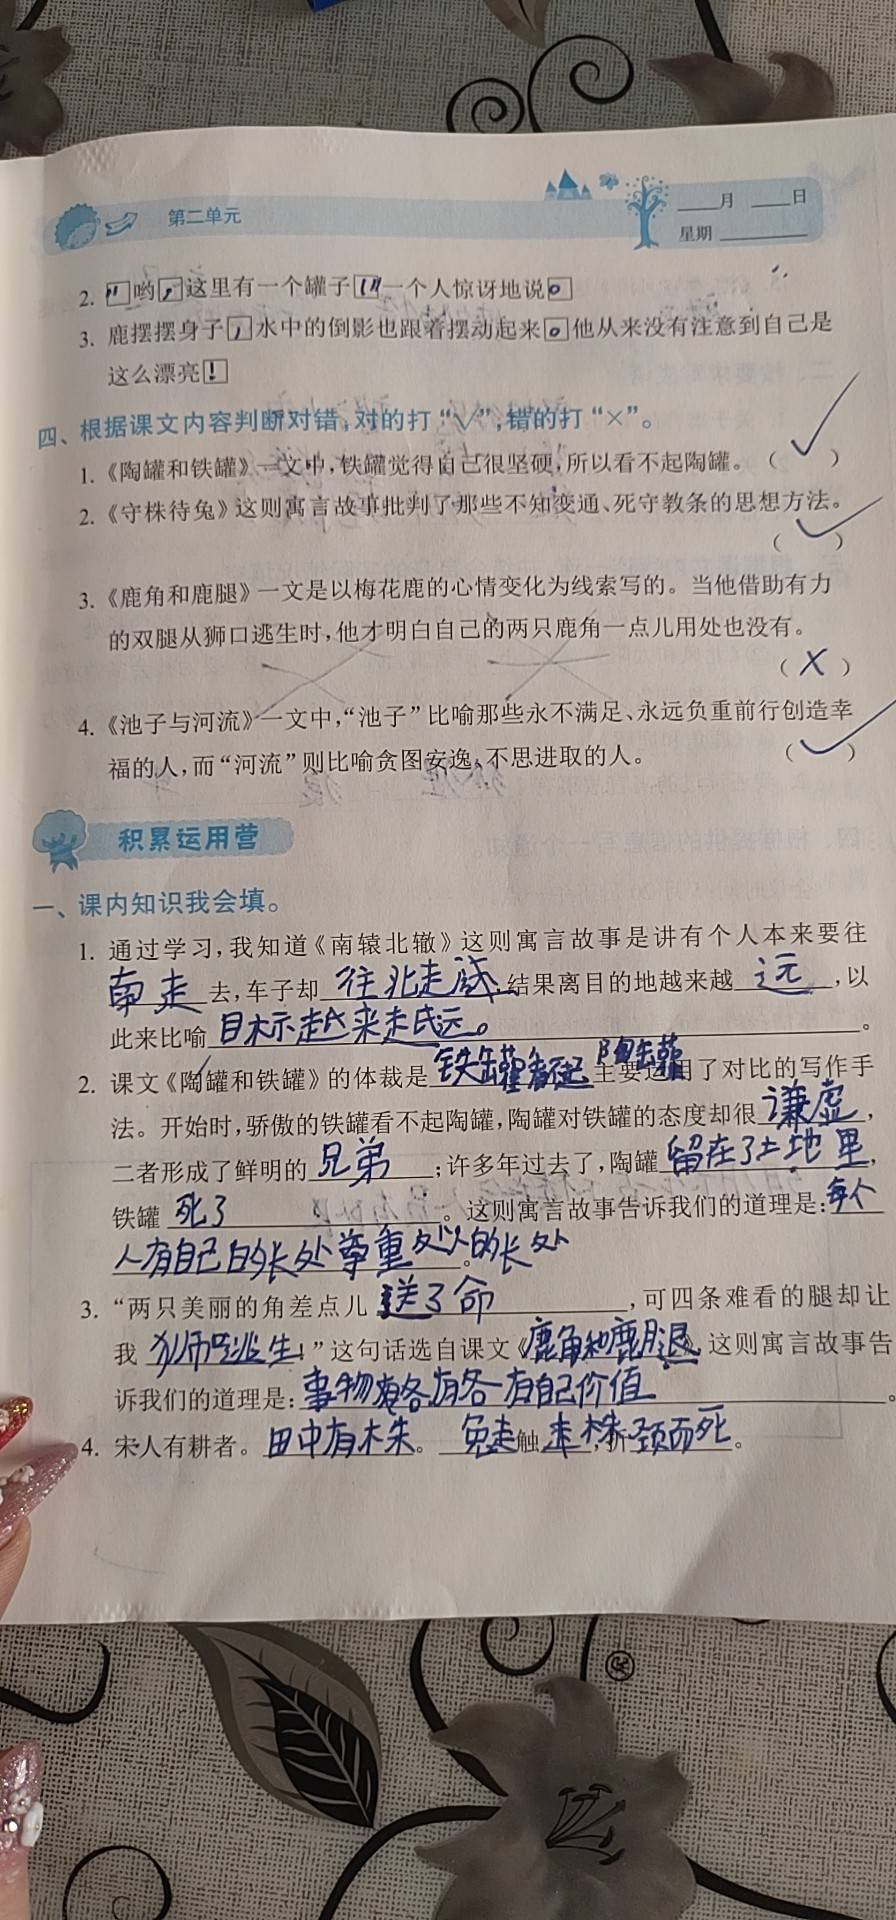 第二单元
____月 ____日
星期 ______
2. “哟,这里有一个罐子!”一个人惊讶地说。
3. 鹿摆摆身子,水中的倒影也跟着摆动起来。他从来没有注意到自己是
这么漂亮!
四、根据课文内容判断对错,对的打“√”,错的打“×”。
1.《陶罐和铁罐》一文中,铁罐觉得自己很坚硬,所以看不起陶罐。(√)
2.《守株待兔》这则寓言故事批判了那些不知变通、死守教条的思想方法。
(√)
3.《鹿角和鹿腿》一文是以梅花鹿的心情变化为线索写的。当他借助有力
的双腿从狮口逃生时,他才明白自己的两只鹿角一点儿用处也没有。
(X)
4.《池子与河流》一文中,“池子”比喻那些永不满足、永远负重前行创造幸
福的人,而“河流”则比喻贪图安逸、不思进取的人。(√)
积累运用营
一、课内知识我会填。
1. 通过学习,我知道《南辕北辙》这则寓言故事是讲有个人本来要往
南走去,车子却往北走,结果离目的地越来越远,以
此来比喻目标越来走远。
2. 课文《陶罐和铁罐》的体裁是铁罐看不起陶罐主要运用了对比的写作手
法。开始时,骄傲的铁罐看不起陶罐,陶罐对铁罐的态度却很谦虚,
二者形成了鲜明的兄弟;许多年过去了,陶罐留在了土地里,
铁罐死了。这则寓言故事告诉我们的道理是:每个
人有自己的长处尊重别人的长处。
3. “两只美丽的角差点儿送了命,可四条难看的腿却让
我狮口逃生!”这句话选自课文《鹿角和鹿腿》,这则寓言故事告
诉我们的道理是:事物有各有各有自己价值。
4. 宋人有耕者。田中有木朱。兔走触株,折颈而死。